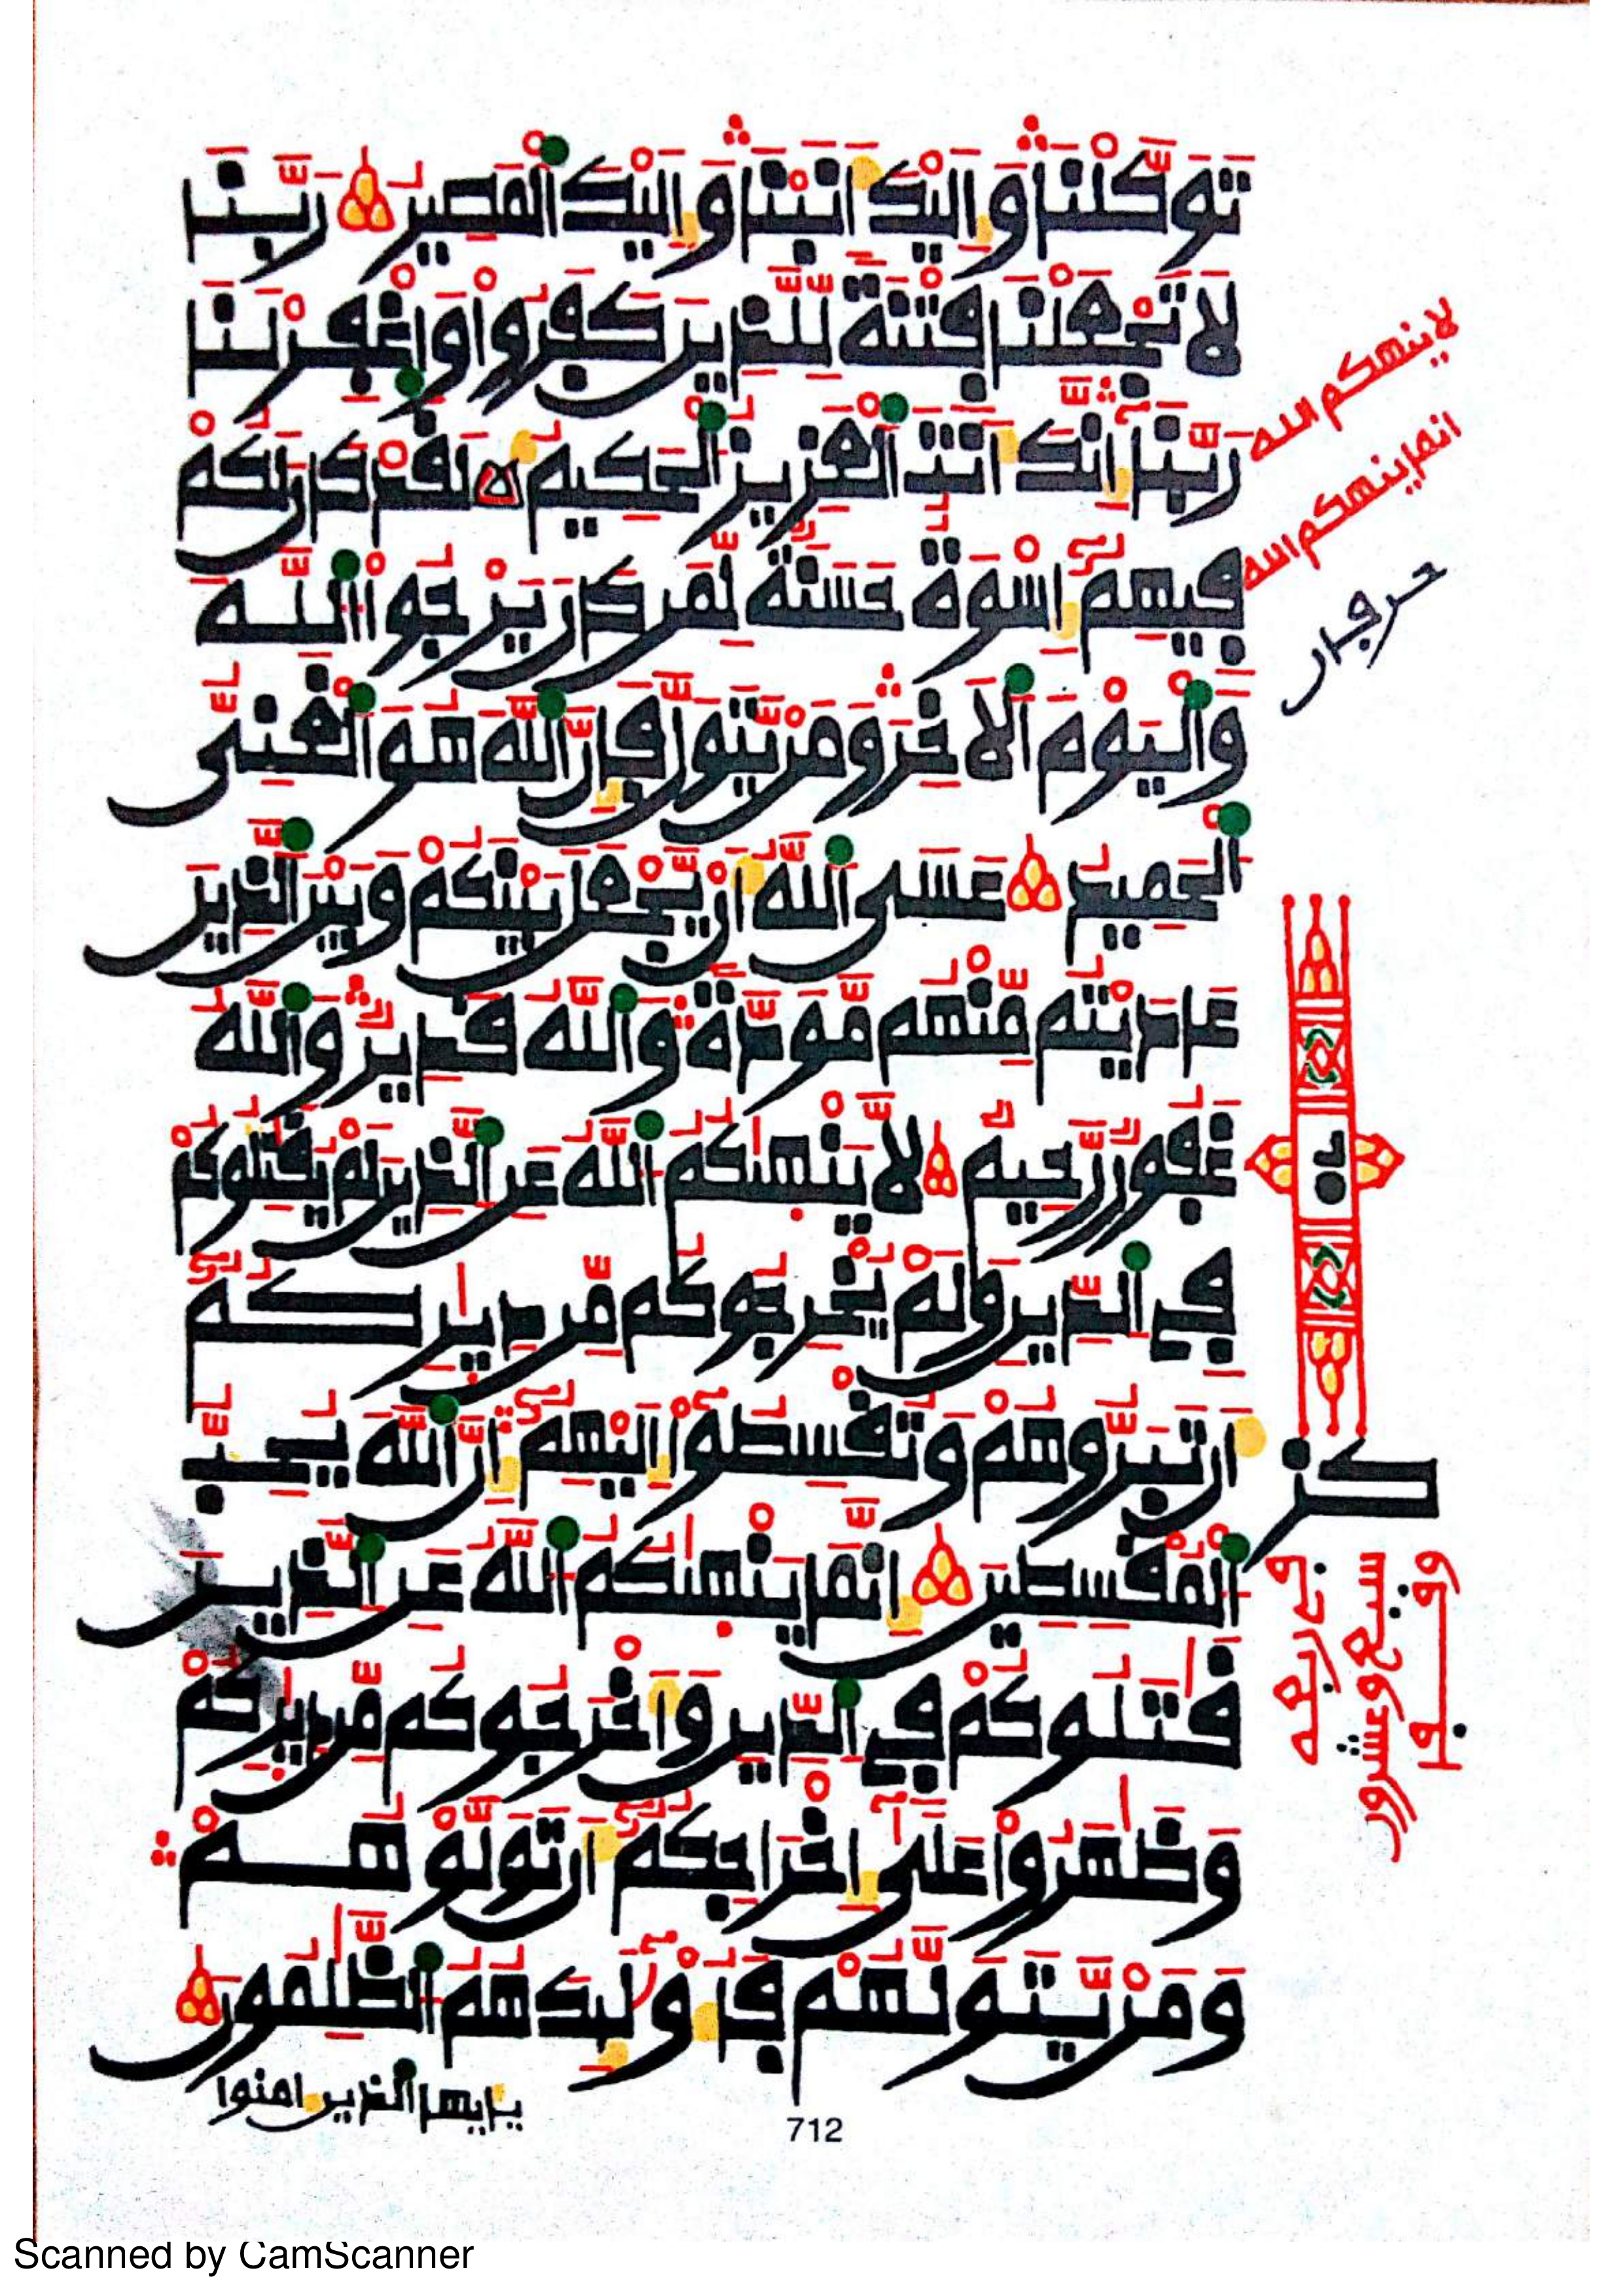 تَوَكَّلْنَا وَإِلَيْكَ أَنَبْنَا وَإِلَيْكَ اَلْمَصِيرُ رَبَّنَا
لَا تَجْعَلْنَا فِتْنَةً لِّلَّذِينَ كَفَرُواْ وَاغْفِرْ لَنَا
رَبَّنَا إِنَّكَ أَنتَ اَلْعَزِيزُ اُلْحَكِيمُ لَقَدْ كَانَ لَكُمْ
فِيهِمُۥٓ إِسْوَةٌ حَسَنَةٌ لِّمَن كَانَ يَرْجُواْ اُللَّهَ
وَالْيَوْمَ اَلَاخِرَ وَمَنْ يَّتَوَلَّ فَإِنَّ اَللَّهَ هُوَ اَلْغَنِىُّ
اُلْحَمِيدُ عَسَى اَللَّهُ أَنْ يَّجْعَلَ بَيْنَكُمْ وَبَيْنَ اَلذِينَ
عَادَيْتُم مِّنْهُم مَّوَدَّةً وَاللَّهُ قَدِيرٌ وَاللَّهُ
غَفُورٌ رَّحِيمٌ لَّا يَنْهَىٰكُمُ اُللَّهُ عَنِ اِلذِينَ لَمْ يُقَٰتِلُوكُمْ
فِي اِلدِّينِ وَلَمْ يُخْرِجُوكُم مِّن دِيَٰرِكُمُۥٓ
أَن تَبَرُّوهُمْ وَتُقْسِطُوٓاْ إِلَيْهِمُۥٓ إِنَّ اَللَّهَ يُحِبُّ
اُلْمُقْسِطِينَ إِنَّمَا يَنْهَىٰكُمُ اُللَّهُ عَنِ اِلذِينَ
قَٰتَلُوكُمْ فِي اِلدِّينِ وَأَخْرَجُوكُم مِّن دِيَٰرِكُمْ
وَظَٰهَرُواْ عَلَىٰٓ إِخْرَاجِكُمُۥٓ أَن تَوَلَّوْهُمْ
وَمَنْ يَّتَوَلَّهُمْ فَأُوْلَٰٓئِكَ هُمُ اُلظَّٰلِمُونَ
يأيها الذين امنوا
لا ينهىكم الله
انما ينهىكم الله
حرفان
712
Scanned by CamScanner